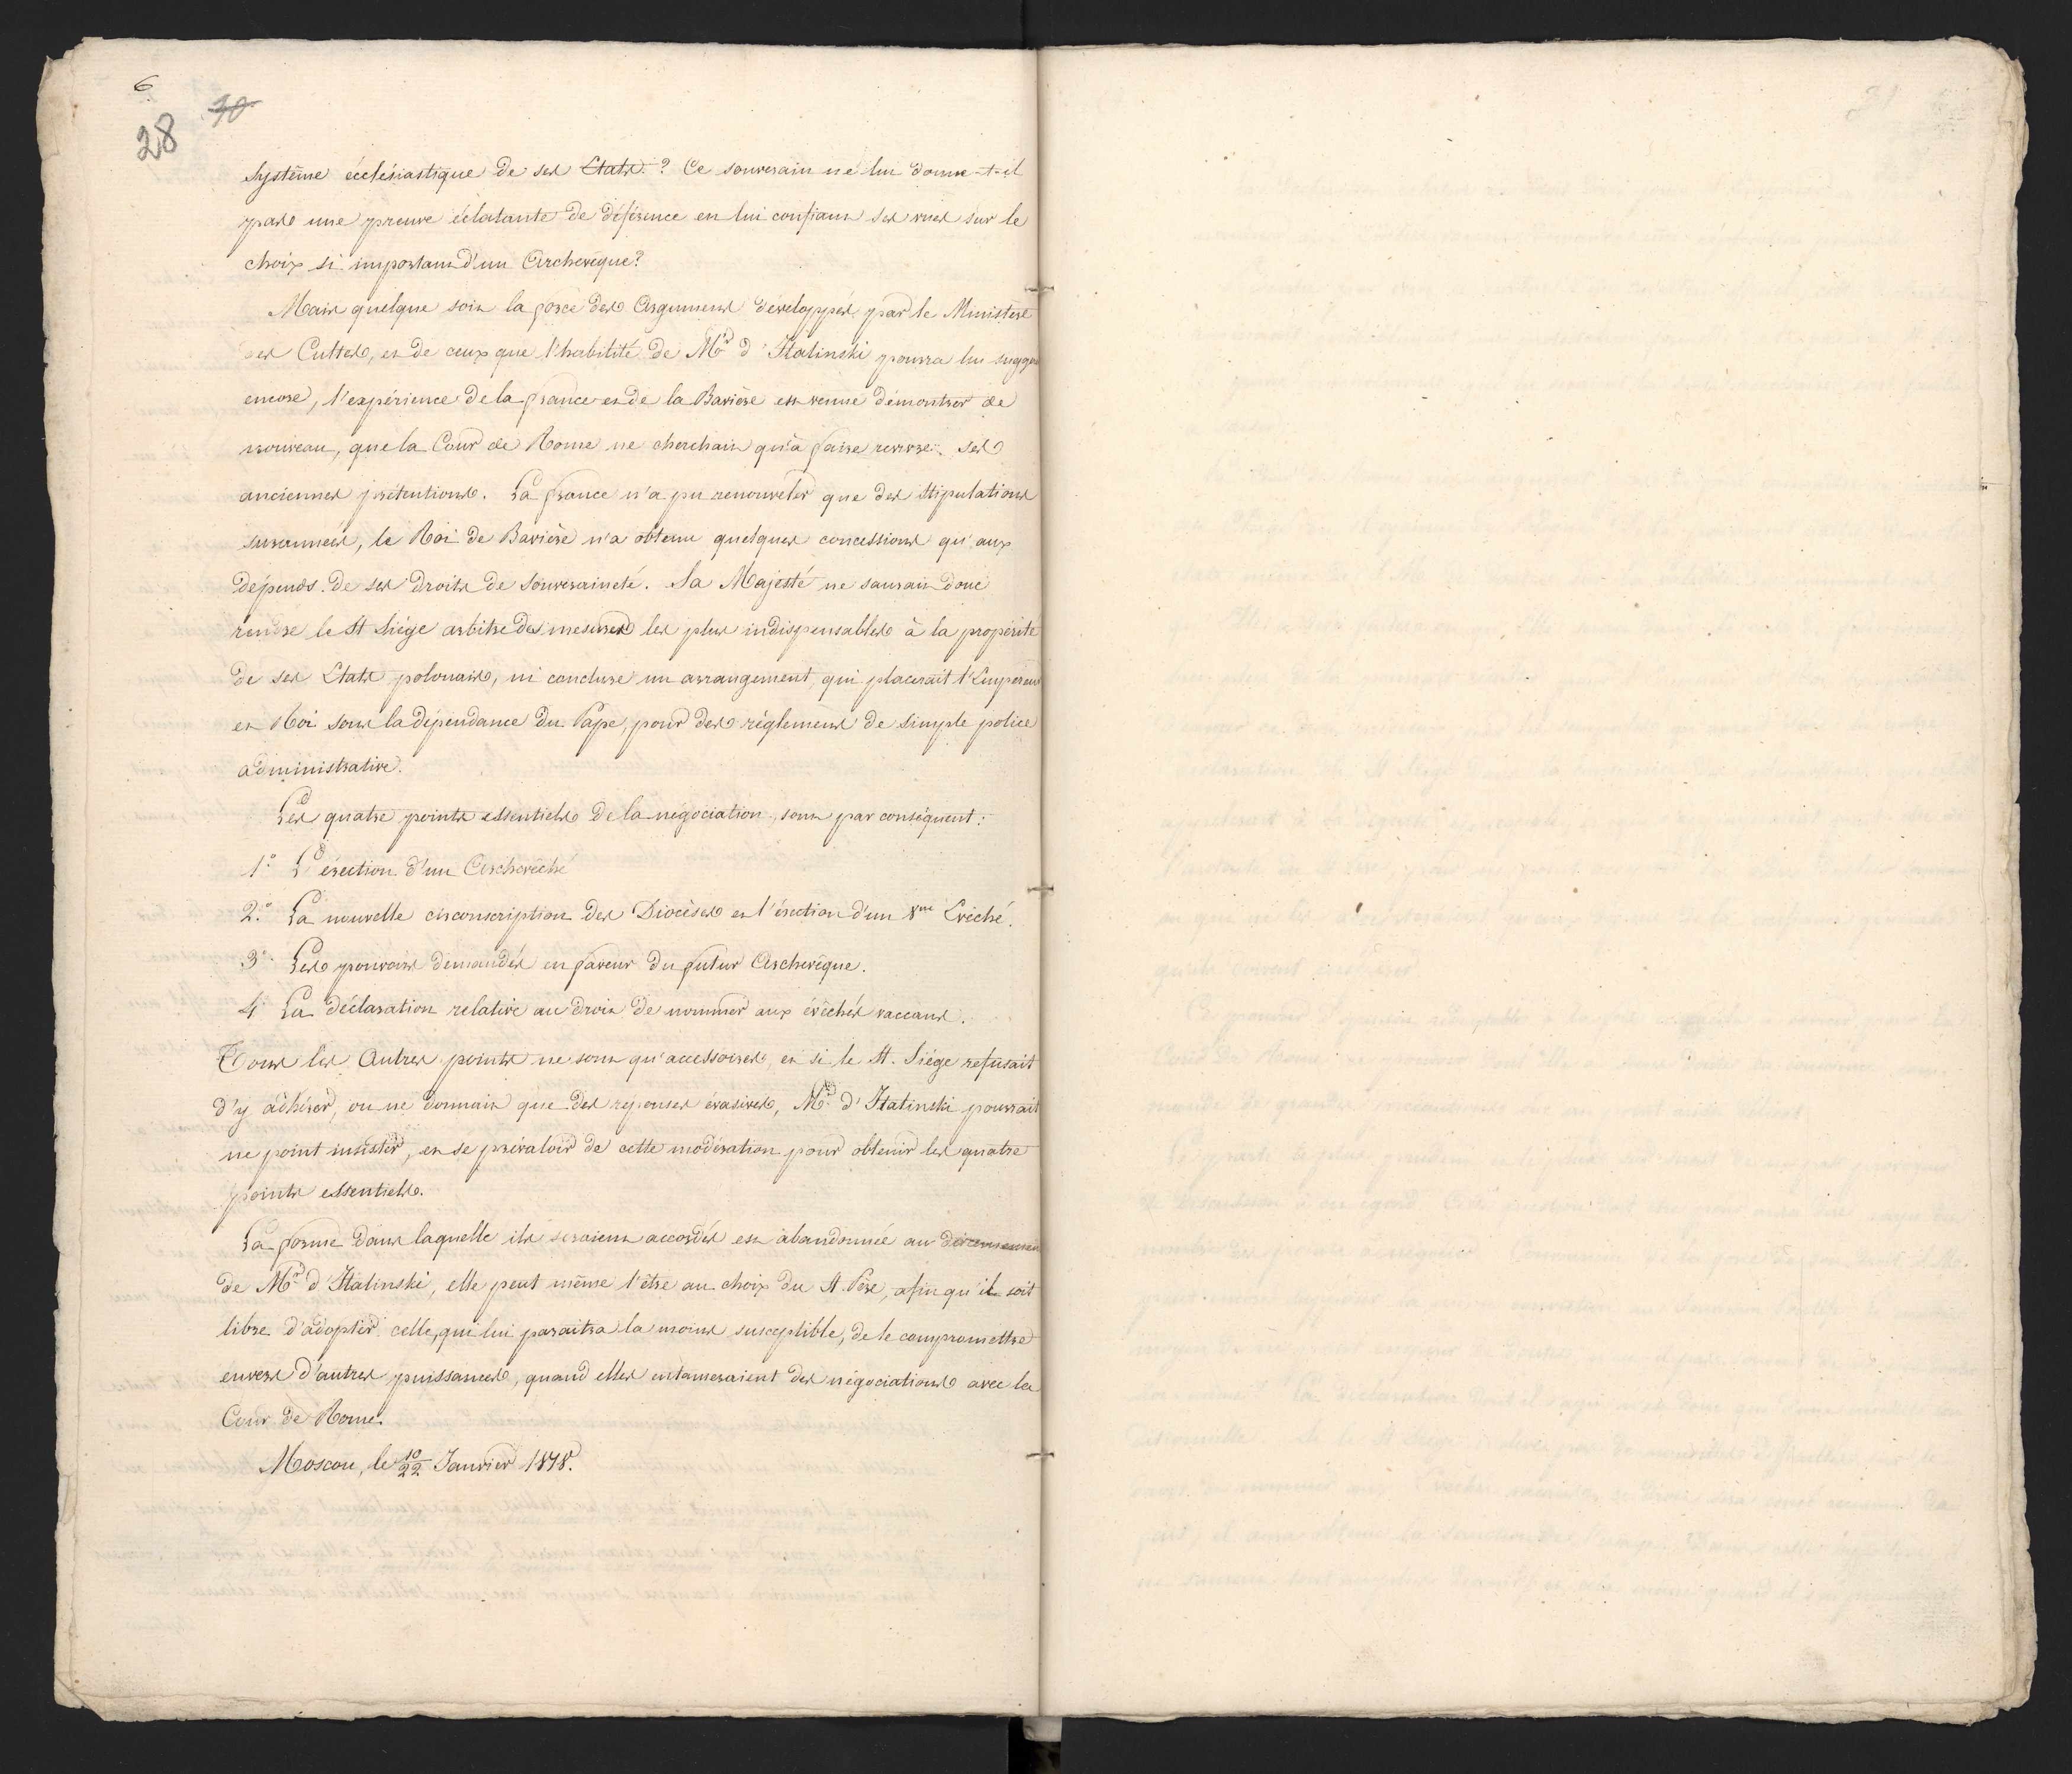 6
28 30
Systême ecclésiastique de ses Etats? Ce souverain ne lui donne-t-il
pas une preuve éclatante de déférence en lui confiant ses vues sur le
choix si important d'un Archevêque?
Mais quelque soit la force des Argumens développés par le Ministère
des Cultes, et de ceux que l'habilité de Mr. d'Italinski pourra lui sugger
encore, l'expérience de la france et de la Bavière est venue démontrer de
nouveau, que la Cour de Rome ne cherchait qu'à faire revivre ses
anciennes prétentions. La france n'a pu renouveler que des Stipulations
surannées, le Roi de Bavière n'a obtenu quelques concessions qu'aux
dépends de ses droits de Souveraineté. Sa Majesté ne saurait donc
rendre le St Siége arbitre des mesures les plus indispensables à la propérité
de ses Etats polonais, ni conclure un arrangement, qui placerait l'Empereur
et Roi sous la dépendance du Pape, pour des réglemens de simple police
administrative.
Les quatre points essentiels de la négociation, sont par conséquent:
1° L'érection d'un Archevêché
2.° La nouvelle circonscription des Diocèses et l'érection d'un 8me Evêché.
3° Les pouvoirs demandés en faveur du futur Archevêque.
4° La déclaration relative au droit de nommer aux évêchés vaccans.
Tous les Autres points ne sont qu'accessoires, et si le St. Siége refusait
d'y adhérer, ou ne donnait que des réponses évasives, Mr. d'Italinski pourrait
ne point insister, et se prévaloir de cette modération pour obtenir les quatre
points essentiels.
La forme dans laquelle ils seraient accordés est abandonnée au
de Mr. d'Italinski, elle peut même l'être au choix du St. Père, afin qu'il soit
libre d'adopter celle, qui lui paraitra la moins susceptible, de le compromettre
envers d'autres puissances, quand elles entameraient des négociations avec la
Cour de Rome.
Moscou, le 10/22 Janvier 1818.